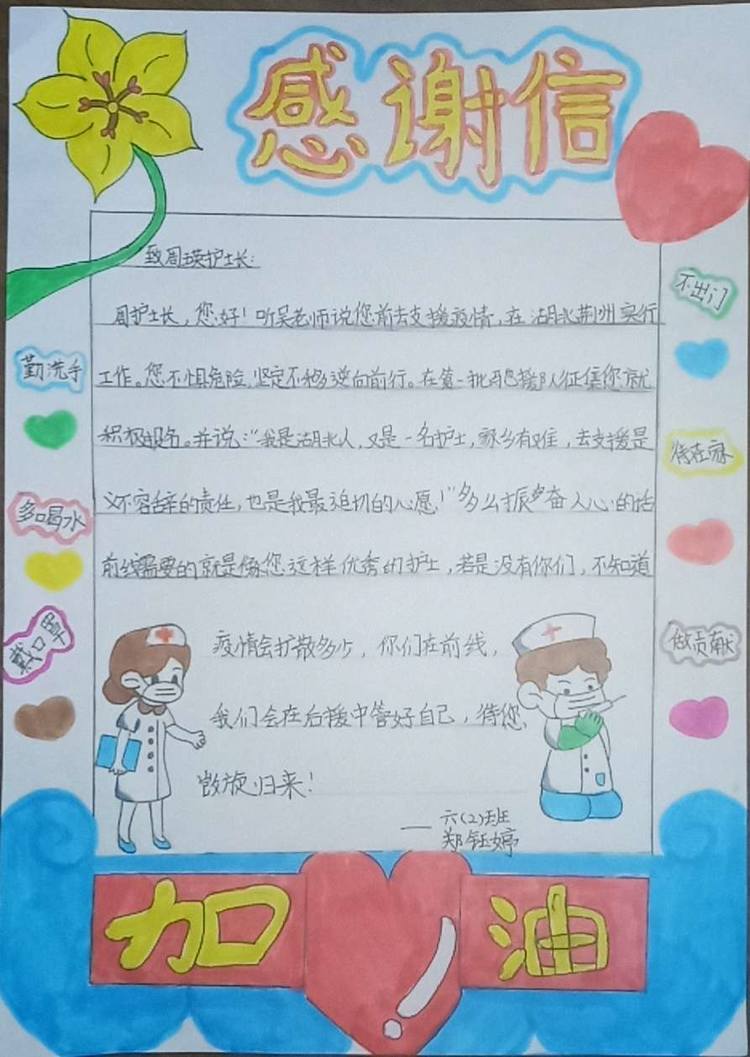 感谢信
致周瑛护士长：
周护士长，您好！听吴老师说您前去支援疫情，在湖北荆州实行
工作。您不惧危险，坚定不移逆向前行。在第一批驰援队征集您就
积极报名。并说："我是湖北人，又是一名护士，家乡有难，去支援是
义不容辞的责任，也是我最迫切的心愿！"多么振奋人心的话
前线需要的就是像您这样优秀的护士，若是没有你们，不知道
疫情会扩散多少，你们在前线，
我们会在后援中管好自己，待您
凯旋归来！
——六(2)班
郑钰婷
勤洗手
多喝水
戴口罩
不出门
待在家
做贡献
加油！